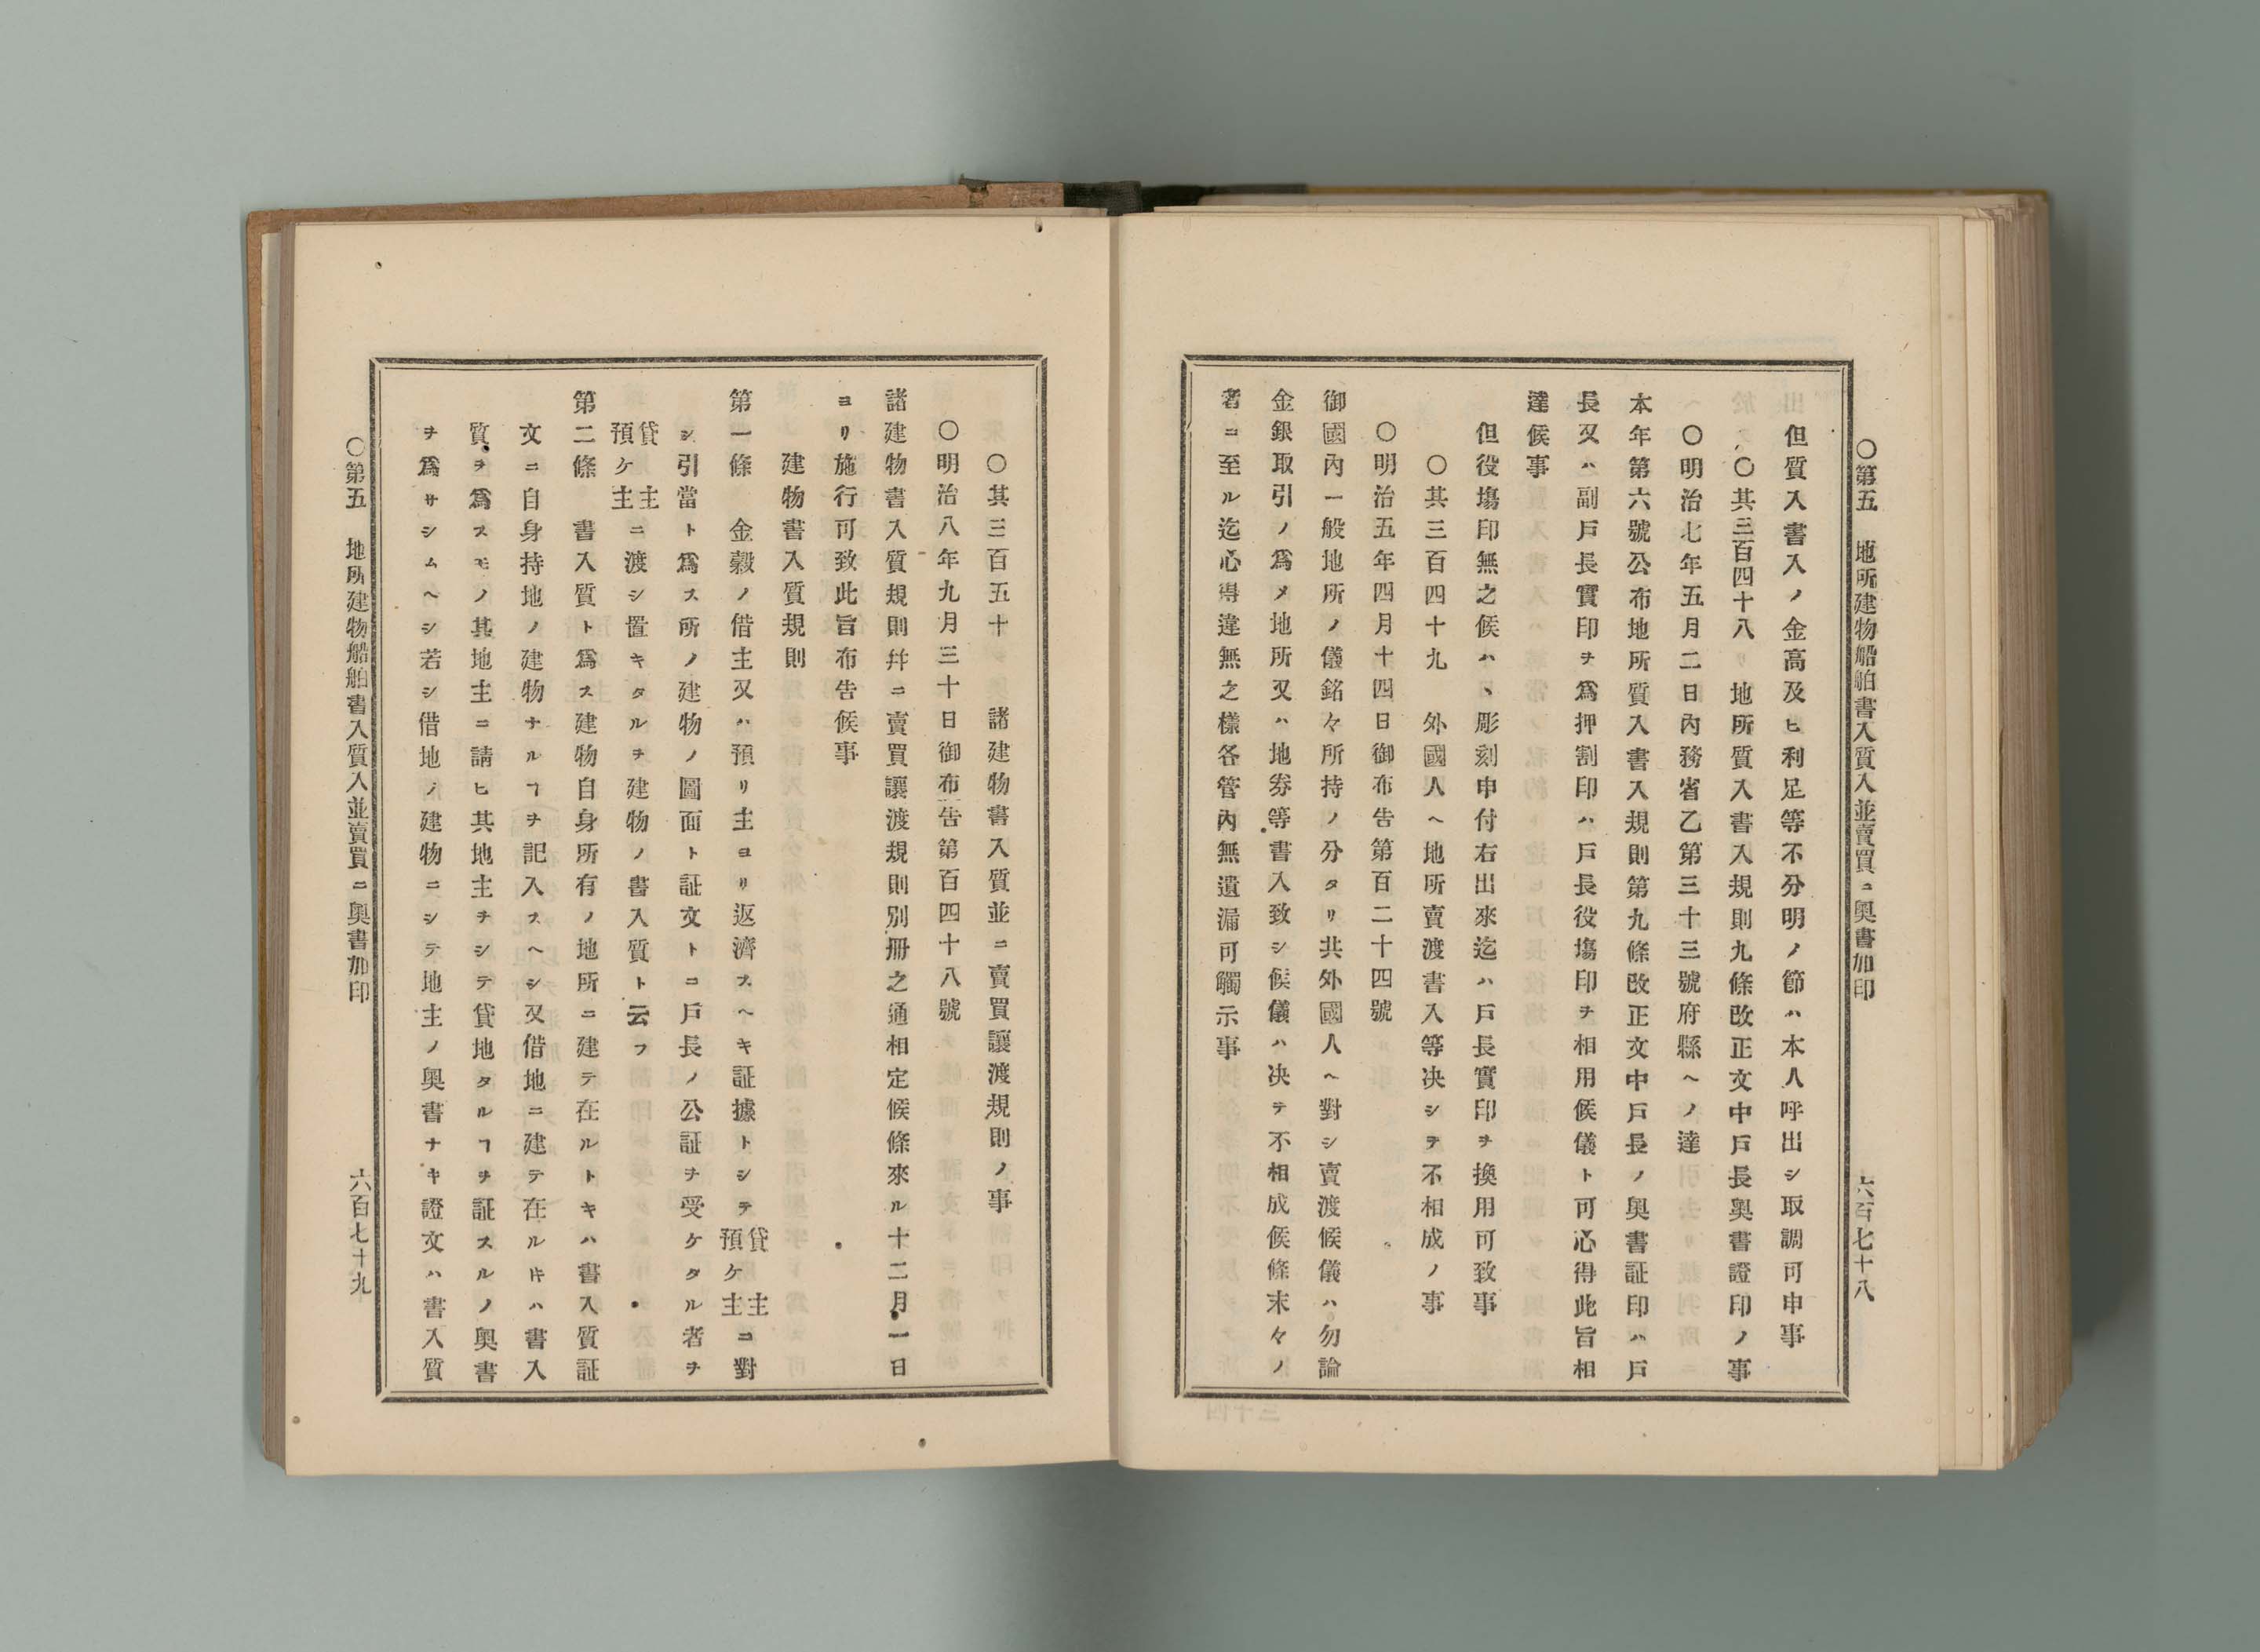 〇第五　地所建物船舶書入質入並賣買ニ奥書加印　六百七十八
但質入書入ノ金高及ヒ利足等不分明ノ節ハ本人呼出シ取調可申事
〇其三百四十八　地所質入書入規則九條改正文中戸長奥書證印ノ事
〇明治七年五月二日內務省乙第三十三號府縣ヘノ達
本年第六號公布地所質入書入規則第九條改正文中戸長ノ奥書証印ハ戸
長又ハ副戸長實印ヲ爲押割印ハ戸長役塲印ヲ相用候儀ト可心得此旨相
達候事
但役塲印無之候ハヽ彫刻申付右出來迄ハ戸長實印ヲ換用可致事
〇其三百四十九　外國人ヘ地所賣渡書入等决シテ不相成ノ事
〇明治五年四月十四日御布告第百二十四號
御國內一般地所ノ儀銘々所持ノ分タリ共外國人ヘ對シ賣渡候儀ハ勿論
金銀取引ノ爲メ地所又ハ地券等書入致シ候儀ハ决テ不相成候條末々ノ
者ニ至ル迄心得違無之樣各管內無遺漏可觸示事
〇其三百五十　諸建物書入質並ニ賣買讓渡規則ノ事
〇明治八年九月三十日御布告第百四十八號
諸建物書入質規則幷ニ賣買讓渡規則別冊之通相定候條來ル十二月一日
ヨリ施行可致此旨布告候事
建物書入質規則
第一條　金穀ノ借主又ハ預リ主ヨリ返濟スヘキ証據トシテ貸主預ケ主ニ對
シ引當ト爲ス所ノ建物ノ圖面ト証文トニ戸長ノ公証ヲ受ケタル者ヲ
貸主預ケ主ニ渡シ置キタルヲ建物ノ書入質ト云フ
第二條　書入質ト爲ス建物自身所有ノ地所ニ建テ在ルトキハ書入質証
文ニ自身持地ノ建物ナルヿヲ記入スヘシ又借地ニ建テ在ル𪜈ハ書入
質ヲ爲スモノ其地主ニ請ヒ其地主ヲシテ貸地タルヿヲ証スルノ奥書
ヲ爲サシムヘシ若シ借地ノ建物ニシテ地主ノ奥書ナキ證文ハ書入質
〇第五　地所建物船舶書入質入並賣買ニ奥書加印　六百七十九